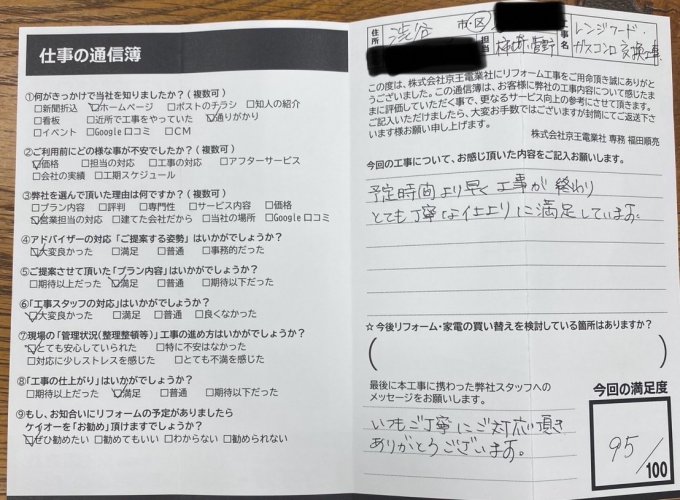 仕事の通信簿
①何がきっかけで当社を知りましたか?(複数可)
□新聞折込 ☑ホームページ □ポストのチラシ □知人の紹介
□看板 □近所で工事をやっていた ☑通りがかり
□イベント □Google口コミ □CM
②ご利用前にどの様な事が不安でしたか?(複数可)
☑価格 □担当の対応 □工事の対応 □アフターサービス
□会社の実績 □工期スケジュール
③弊社を選んで頂いた理由は何ですか?(複数可)
□プラン内容 □評判 □専門性 □サービス内容 □価格
☑営業担当の対応 □建てた会社だから □当社の場所 □Google口コミ
④アドバイザーの対応「ご提案する姿勢」はいかがでしょうか?
☑大変良かった □満足 □普通 □事務的だった
⑤ご提案させて頂いた「プラン内容」はいかがでしょうか?
□期待以上だった ☑満足 □普通 □期待以下だった
⑥「工事スタッフの対応」はいかがでしょうか?
☑大変良かった □満足 □普通 □良くなかった
⑦現場の「管理状況(整理整頓等)」工事の進め方はいかがでしょうか?
☑とても安心していられた □特に不安はなかった
□対応に少しストレスを感じた □とても不満を感じた
⑧「工事の仕上がり」はいかがでしょうか?
□期待以上だった ☑満足 □普通 □期待以下だった
⑨もし、お知合いにリフォームの予定がありましたら
ケイオーを「お勧め」頂けますでしょうか?
☑ぜひ勧めたい □勧めてもいい □わからない □勧められない
住所 渋谷 市・区
担当 菅野
工事名 レンジフード・
ガスコンロ交換工事
この度は、株式会社京王電業社にリフォーム工事をご用命頂き誠にありがとう
うございました。この通信簿は、お客様に弊社の工事内容について感じたま
まに評価していただく事で、更なるサービス向上の参考にさせて頂きます。
ご記入いただけましたら、大変お手数ではございますが封筒にてご返送下さ
います様お願い申し上げます。
株式会社京王電業社 専務 福田順亮
今回の工事について、お感じ頂いた内容をご記入お願いします。
予定時間より早く工事が終わり
とても丁寧な仕上りに満足しています。
☆今後リフォーム・家電の買い替えを検討している箇所はありますか?
最後に本工事に携わった弊社スタッフへの
メッセージをお願いします。
いつもご丁寧にご対応頂き
ありがとうございます。
今回の満足度
95/100